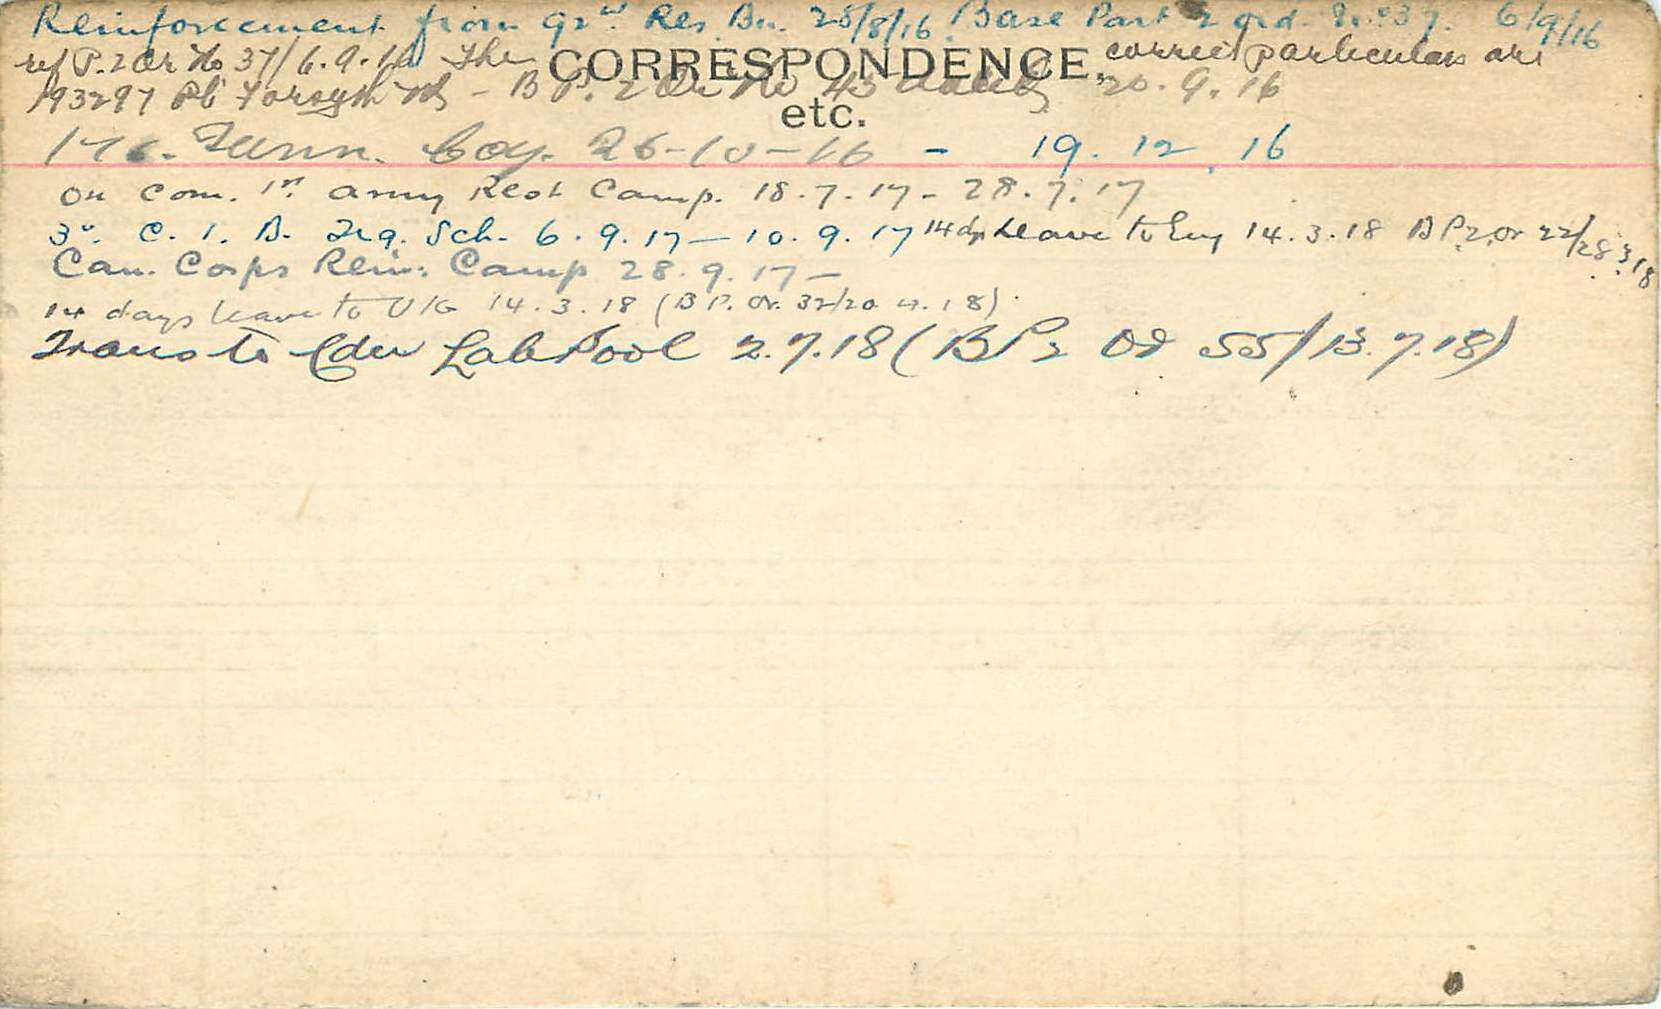 Reinforcement from 92nd Res. Bn. 25/8/16. Base Part 2 ord. No. 37. 6/9/16
ref P.2 Or No 37/6.9.16 The correct particulars are
CORRESPONDENCE,
193297 Pte Forsyth - B P. 2 Or No 43 dated 20.9.16
etc.
176. Tunn. Coy. 26-10-16 - 19.12.16
on com. 1st Army Rest Camp. 18.7.17 - 28.7.17
3rd. C.I.B. Trg. Sch. 6.9.17 - 10.9.17 14 dys Leave to Eng 14.3.18 B P2 Or 22/28.3.18
Can. Corps Rein: Camp 28.9.17 -
14 days leave to U/K 14.3.18 (B P. Or. 32/20.4.18).
Trans to Cdn Lab Pool 2.7.18 (B P2 Od 55/13.7.18)